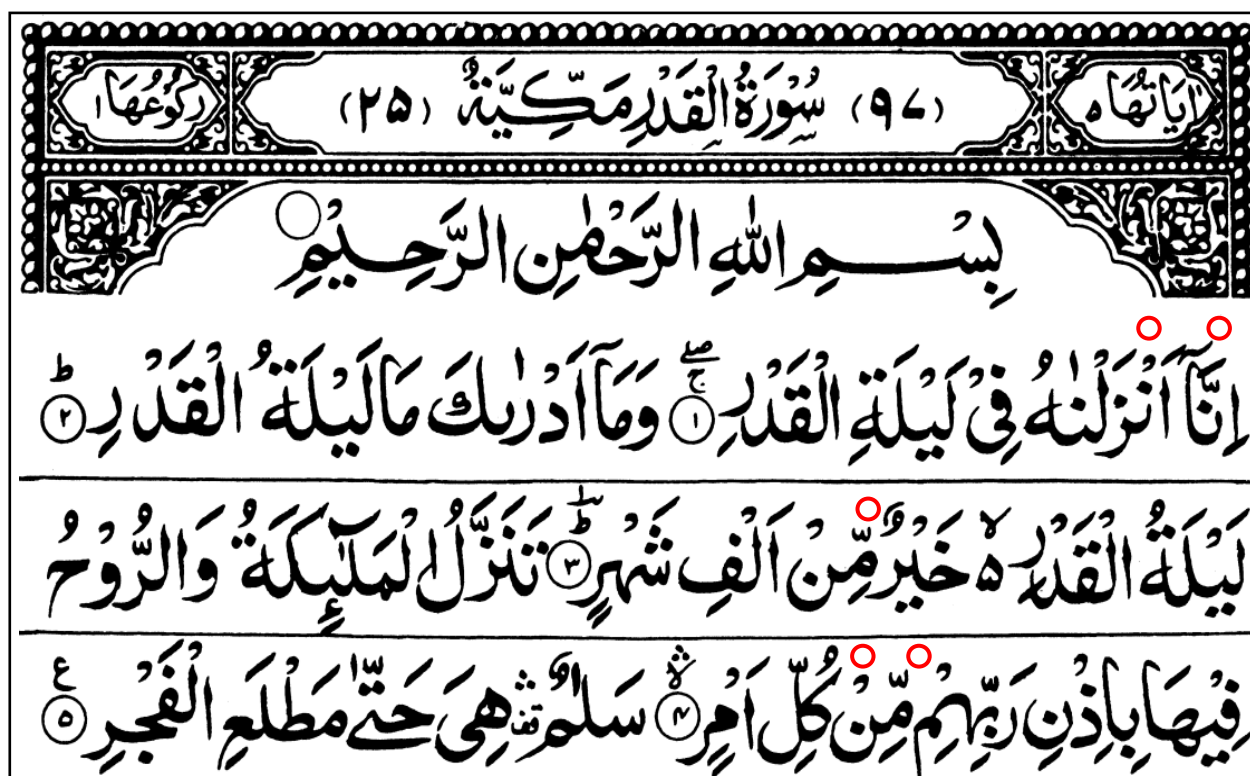 اٰيَاتُهَا ٥ (٩٧) سُوْرَةُ الْقَدْرِ مَكِّيَّةٌ (٢٥) رُكُوْعُهَا ١
بِسْمِ اللهِ الرَّحْمٰنِ الرَّحِيْمِ
اِنَّاۤ اَنْزَلْنٰهُ فِيْ لَيْلَةِ الْقَدْرِ ۚۖ ١ وَمَاۤ اَدْرٰىكَ مَا لَيْلَةُ الْقَدْرِ ؕ ٢
لَيْلَةُ الْقَدْرِ ۙ۬ خَيْرٌ مِّنْ اَلْفِ شَهْرٍ ؕؔ ٣ تَنَزَّلُ الْمَلٰٓئِكَةُ وَالرُّوْحُ
فِيْهَا بِاِذْنِ رَبِّهِمْ مِّنْ كُلِّ اَمْرٍ ۙۛ ٤ سَلٰمٌ ۛ۫ هِيَ حَتّٰى مَطْلَعِ الْفَجْرِ ٥ ع